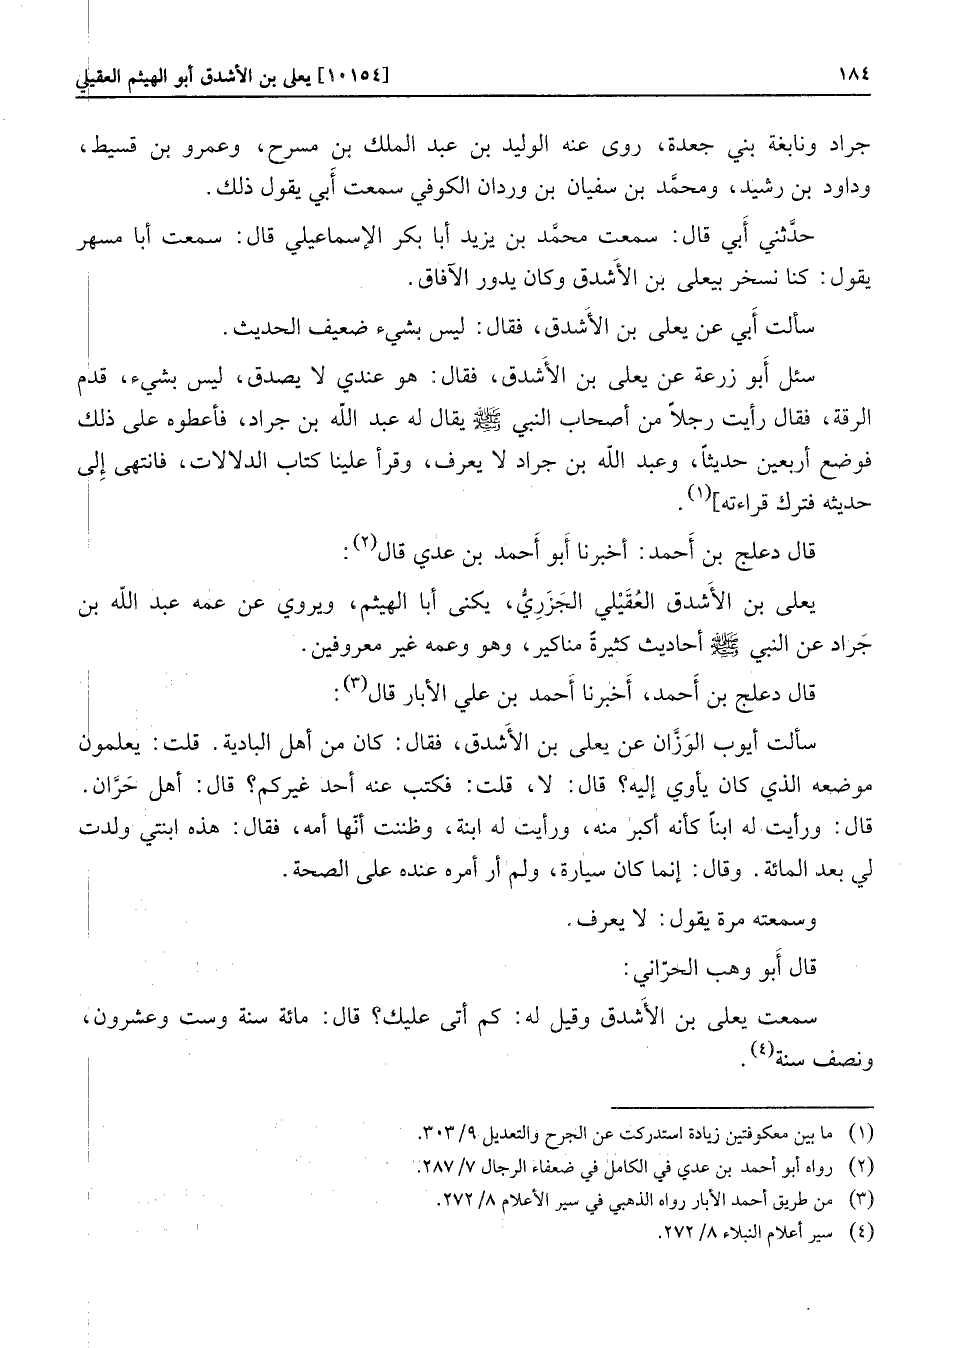 ١٨٤ [١٠١٥٤] يعلى بن الأشدق أبو الهيثم العقيلي
جراد ونابغة بني جعدة، روى عنه الوليد بن عبد الملك بن مسرح، وعمرو بن قسيط،
وداود بن رشيد، ومحمَّد بن سفيان بن وردان الكوفي سمعت أَبي يقول ذلك.
حدَّثني أَبي قال: سمعت محمَّد بن يزيد أبا بكر الإسماعيلي قال: سمعت أبا مسهر
يقول: كنا نسخر بيعلى بن الأَشدق وكان يدور الآفاق.
سألت أَبي عن يعلى بن الأَشدق، فقال: ليس بشيء ضعيف الحديث.
سئل أَبو زرعة عن يعلى بن الأَشدق، فقال: هو عندي لا يصدق، ليس بشيء، قدم
الرقة، فقال رأيت رجلاً من أصحاب النبي ﷺ يقال له عبد الله بن جراد، فأعطوه على ذلك
فوضع أربعين حديثاً، وعبد الله بن جراد لا يعرف، وقرأ علينا كتاب الدلالات، فانتهى إِلى
حديثه فترك قراءته](١).
قال دعلج بن أَحمد: أخبرنا أَبو أَحمد بن عدي قال(٢):
يعلى بن الأَشدق العُقَيْلي الجَزَرِيُّ، يكنى أبا الهيثم، ويروي عن عمه عبد الله بن
جَراد عن النبي ﷺ أحاديث كثيرةً مناكير، وهو وعمه غير معروفين.
قال دعلج بن أَحمد، أَخبرنا أَحمد بن علي الأبار قال(٣):
سألت أيوب الوَزَّان عن يعلى بن الأَشدق، فقال: كان من أهل البادية. قلت: يعلمون
موضعه الذي كان يأوي إليه؟ قال: لا، قلت: فكتب عنه أحد غيركم؟ قال: أهل حَرَّان.
قال: ورأيت له ابناً كأنه أكبر منه، ورأيت له ابنة، وظننت أنّها أمه، فقال: هذه ابنتي ولدت
لي بعد المائة. وقال: إنما كان سيارة، ولم أر أمره عنده على الصحة.
وسمعته مرة يقول: لا يعرف.
قال أَبو وهب الحرّاني:
سمعت يعلى بن الأَشدق وقيل له: كم أتى عليك؟ قال: مائة سنة وست وعشرون،
ونصف سنة(٤).
(١) ما بين معكوفتين زيادة استدركت عن الجرح والتعديل ٩/ ٣٠٣.
(٢) رواه أبو أحمد بن عدي في الكامل في ضعفاء الرجال ٧/ ٢٨٧.
(٣) من طريق أحمد الأبار رواه الذهبي في سير الأعلام ٨/ ٢٧٢.
(٤) سير أعلام النبلاء ٨/ ٢٧٢.